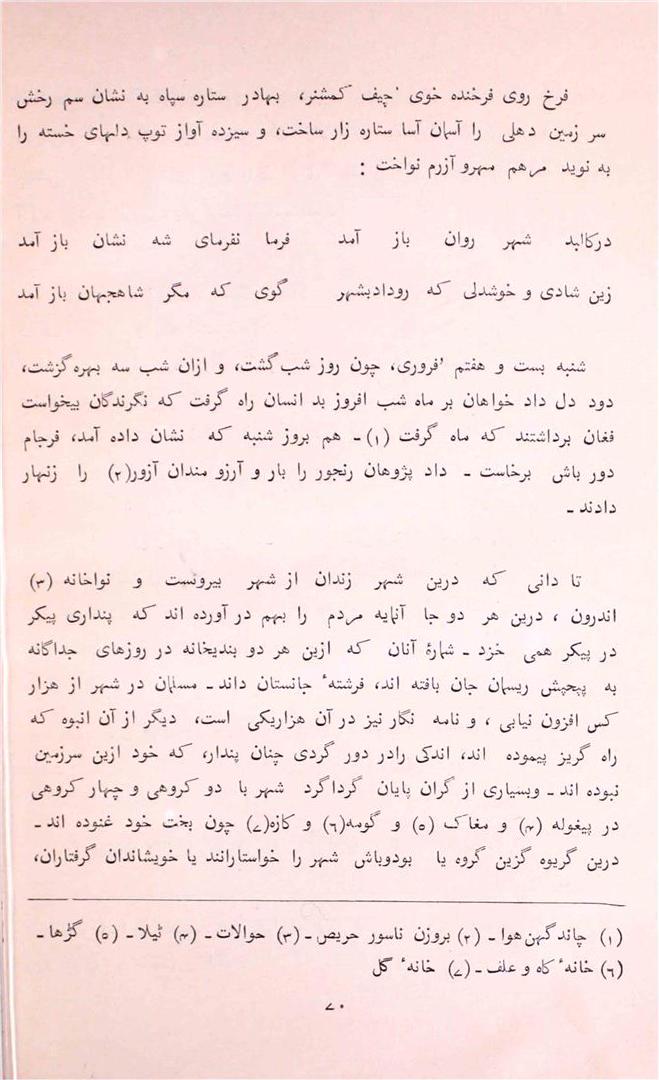 فرخ روی فرخنده خوی 'چیف کمشنر، بهادر ستاره سپاه به نشان سم رخش
سر زمین دهلی را آسمان آسا ستاره زار ساخت، و سیزده آواز توپ دلهای خسته را
به نوید مرهم مهرو آزرم نواخت :
درکالبد شهر روان باز آمد فرما نفرمای شه نشان باز آمد
زین شادی و خوشدلی که رودادبشهر گوی که مگر شاهجهان باز آمد
شنبه بست و هفتم 'فروری، چون روز شب گشت، و ازان شب سه بهره گزشت،
دود دل داد خواهان بر ماه شب افروز بد انسان راه گرفت که نگرندگان بیخواست
فغان برداشتند که ماه گرفت (۱) ۔ هم بروز شنبه که نشان داده آمد، فرجام
دور باش برخاست ۔ داد پژوهان رنجور را بار و آرزو مندان آزور(۲) را زنهار
دادند ۔
تا دانی که درین شهر زندان از شهر بیرونست و نواخانه (۳)
اندرون ، درین هر دو جا آنمایه مردم را بهم در آورده اند که پنداری پیکر
در پیکر همی خزد ۔ شمارهٔ آنان که ازین هر دو بندیخانه در روزهای جداگانه
به پیچش ریسمان جان بافته اند، فرشتهٔ جانستان داند ۔ مسلمان در شهر از هزار
کس افزون نیابی ، و نامه نگار نیز در آن هزاریکی است، دیگر از آن انبوه که
راه گریز پیموده اند، اندکی رادر دور گردی چنان پندار، که خود ازین سرزمین
نبوده اند ۔ وبسیاری از گران پایان گرداگرد شهر با دو کروهی و چهار کروهی
در پیغوله (۴) و مغاک (۵) و گومه(۶) و کازه(۷) چون بخت خود غنوده اند ۔
درین گریوه گزین گروه یا بودوباش شهر را خواستارانند یا خویشاندان گرفتاران،
(۱) چاند گہن هوا ۔ (۲) بروزن ناسور حریص ۔ (۳) حوالات ۔ (۴) ٹیلا ۔ (۵) گڑها ۔
(۶) خانهٔ کاه و علف ۔ (۷) خانهٔ گل
۷۰